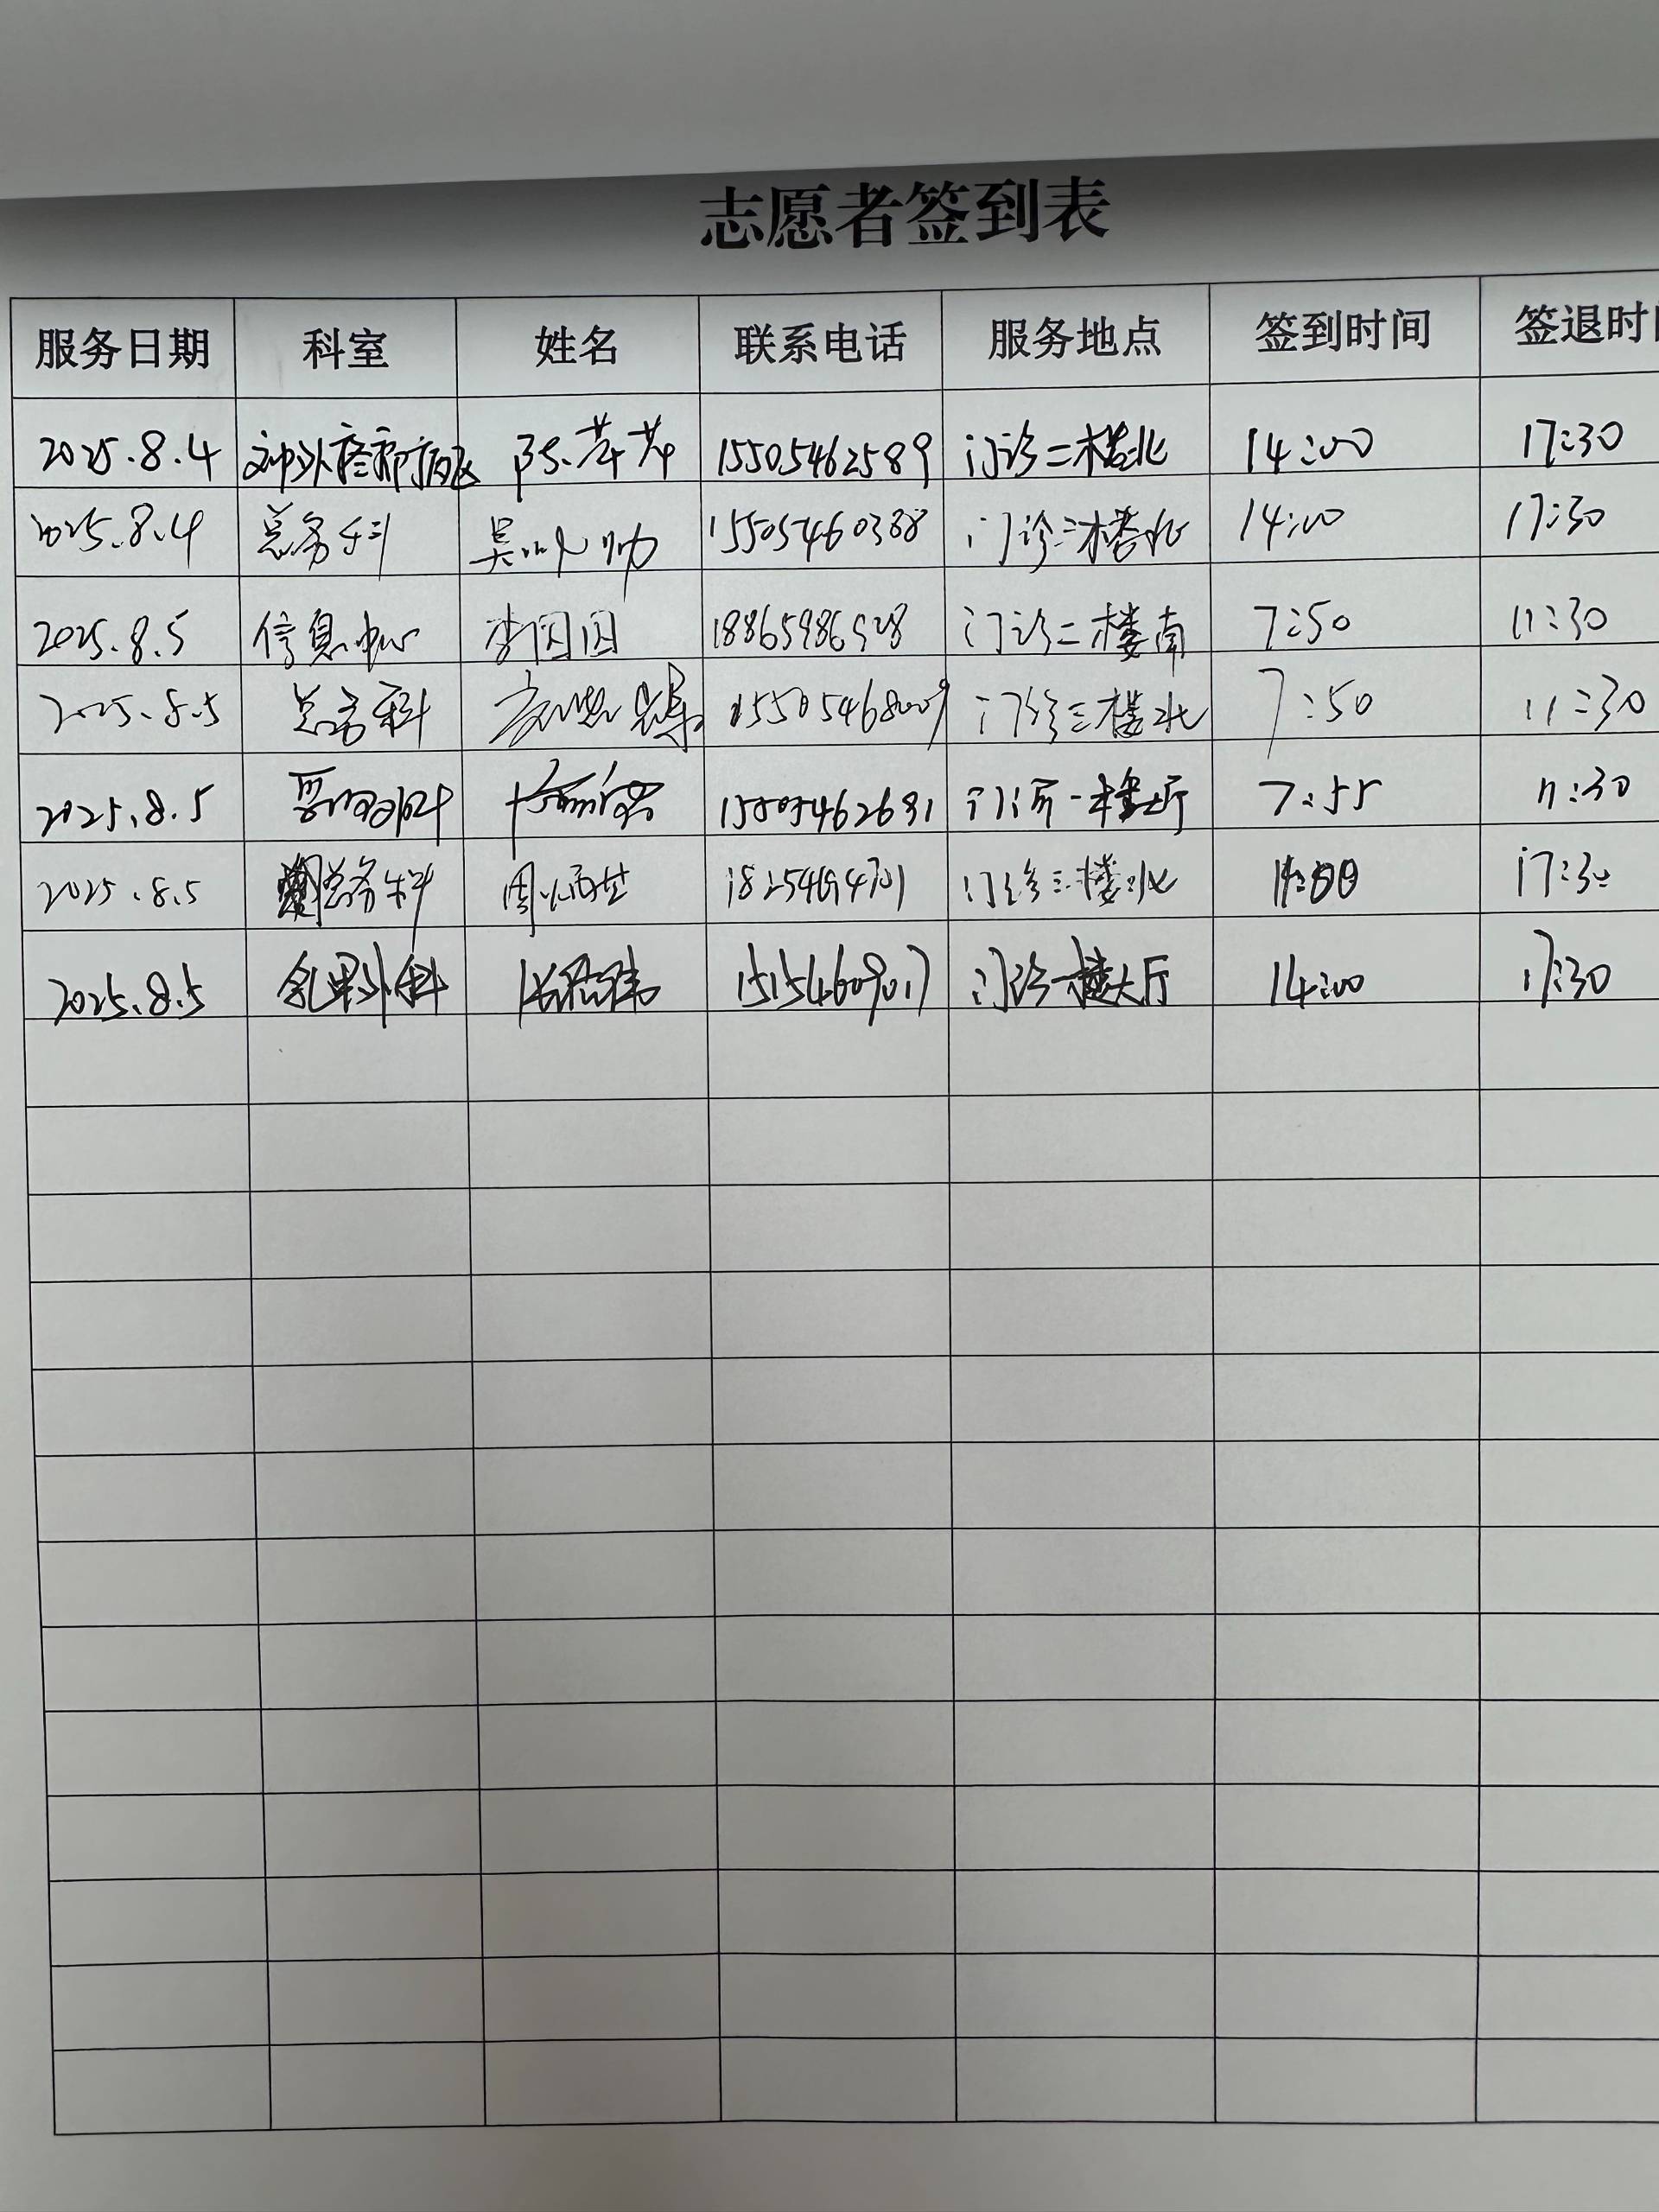 志愿者签到表
服务日期 科室 姓名 联系电话 服务地点 签到时间 签退时
2025.8.4 陈苹苹 15505462589 门诊二楼北 14:00 17:30
2025.8.4 总务科 吴 15505460388 门诊三楼北 14:00 17:30
2025.8.5 信息中心 李囡囡 18865986928 门诊二楼南 7:50 11:30
2025.8.5 总务科 门诊三楼北 7:50 11:30
2025.8.5 15505462631 门诊一楼大厅 7:55 11:30
2025.8.5 总务科 周 门诊三楼北 17:30
2025.8.5 乳甲外科 门诊一楼大厅 14:00 17:30